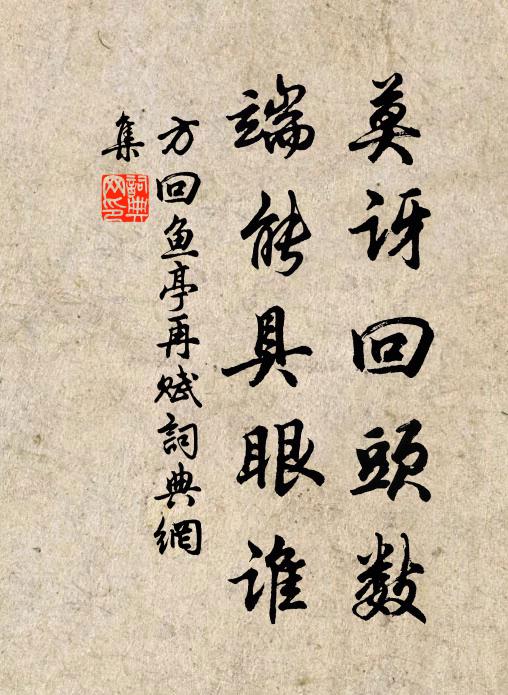 莫讶回頭数
端能具眼谁
方回鱼亭再赋詞典網
集
詞典
网印